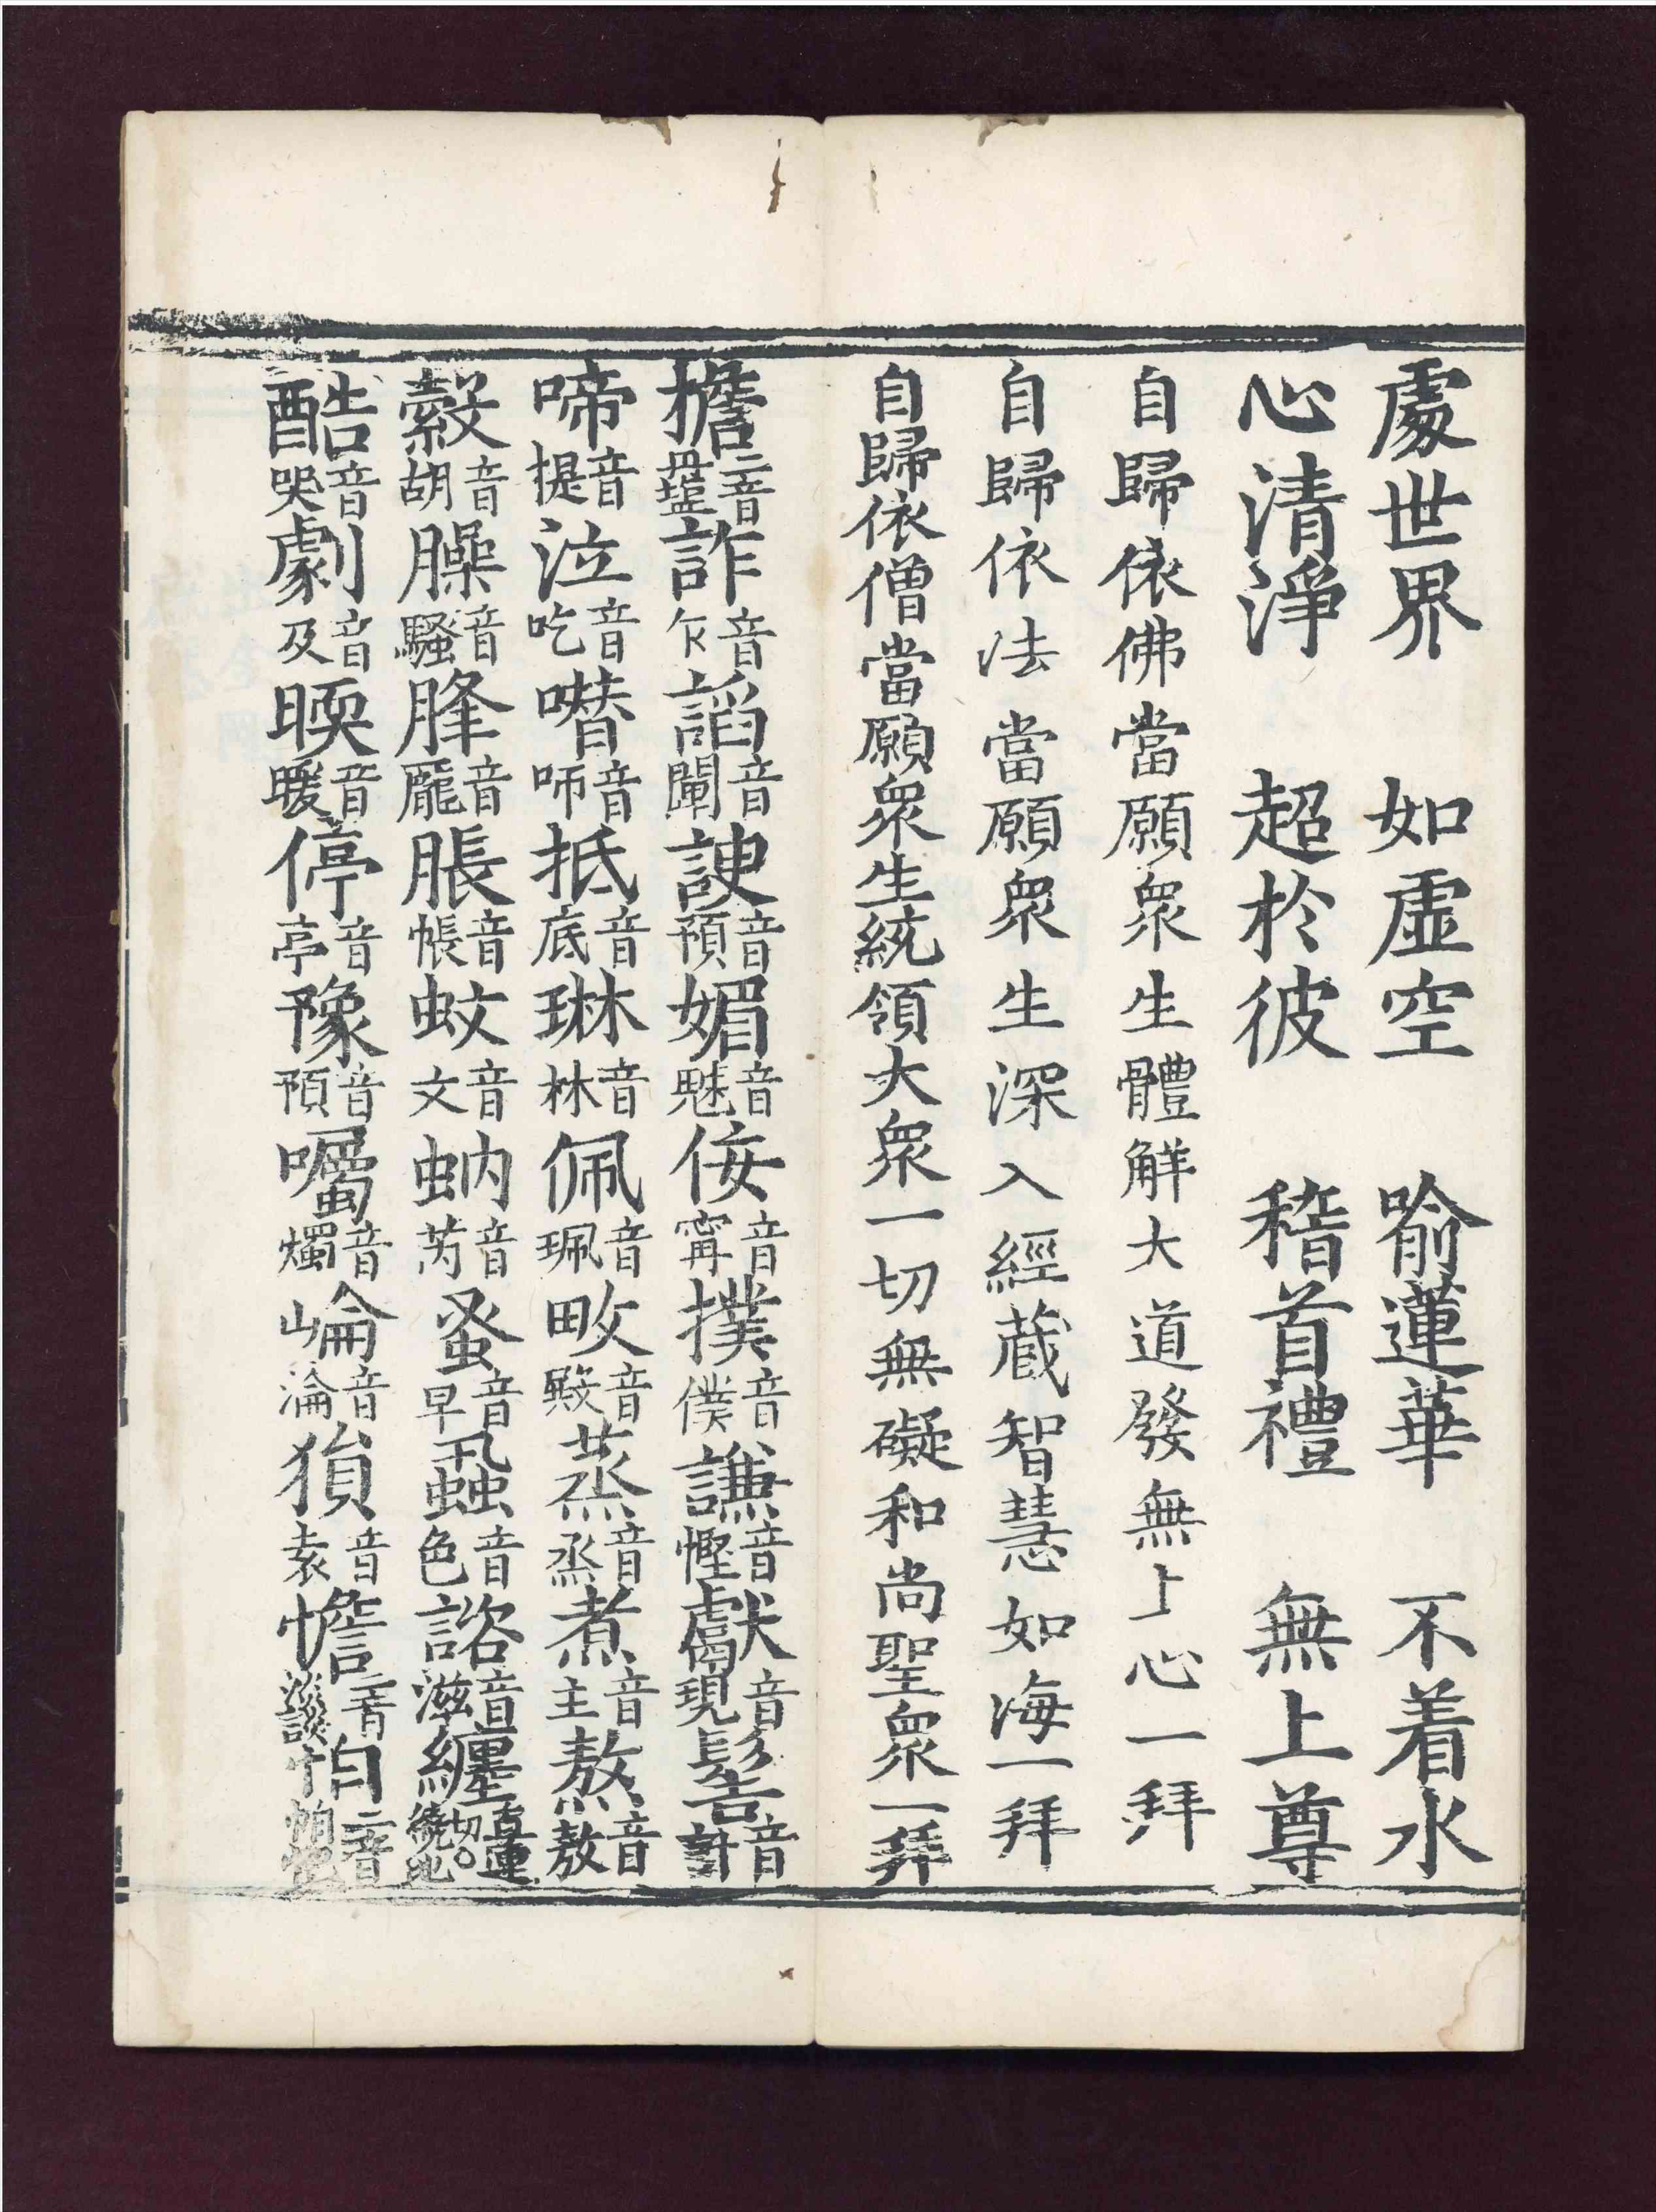 處世界　如虛空　喻蓮華　不着水
心清淨　超於彼　稽首禮　無上尊
自歸依佛當願眾生體解大道發無上心一拜
自歸依法當願眾生深入經藏智慧如海一拜
自歸依僧當願眾生統領大眾一切無礙和尚聖眾一拜
擔二音詐音乍謟音闡諛音預媚音魅侫音甯撲音僕謙音慳獻音現髻音計
啼音提泣音吃噆音咂抵音底琳音林佩音珮畋音蒸音烝煮音主熬音敖
縠音胡臊音騷胮音龐脹音帳蚊音文蚋音芮蚤音早蝨音色諮音滋纏直連切
酷音哭劇音及暝音暖停音亭豫音預囑音燭崘音淪猿音袁憺二音怕二音